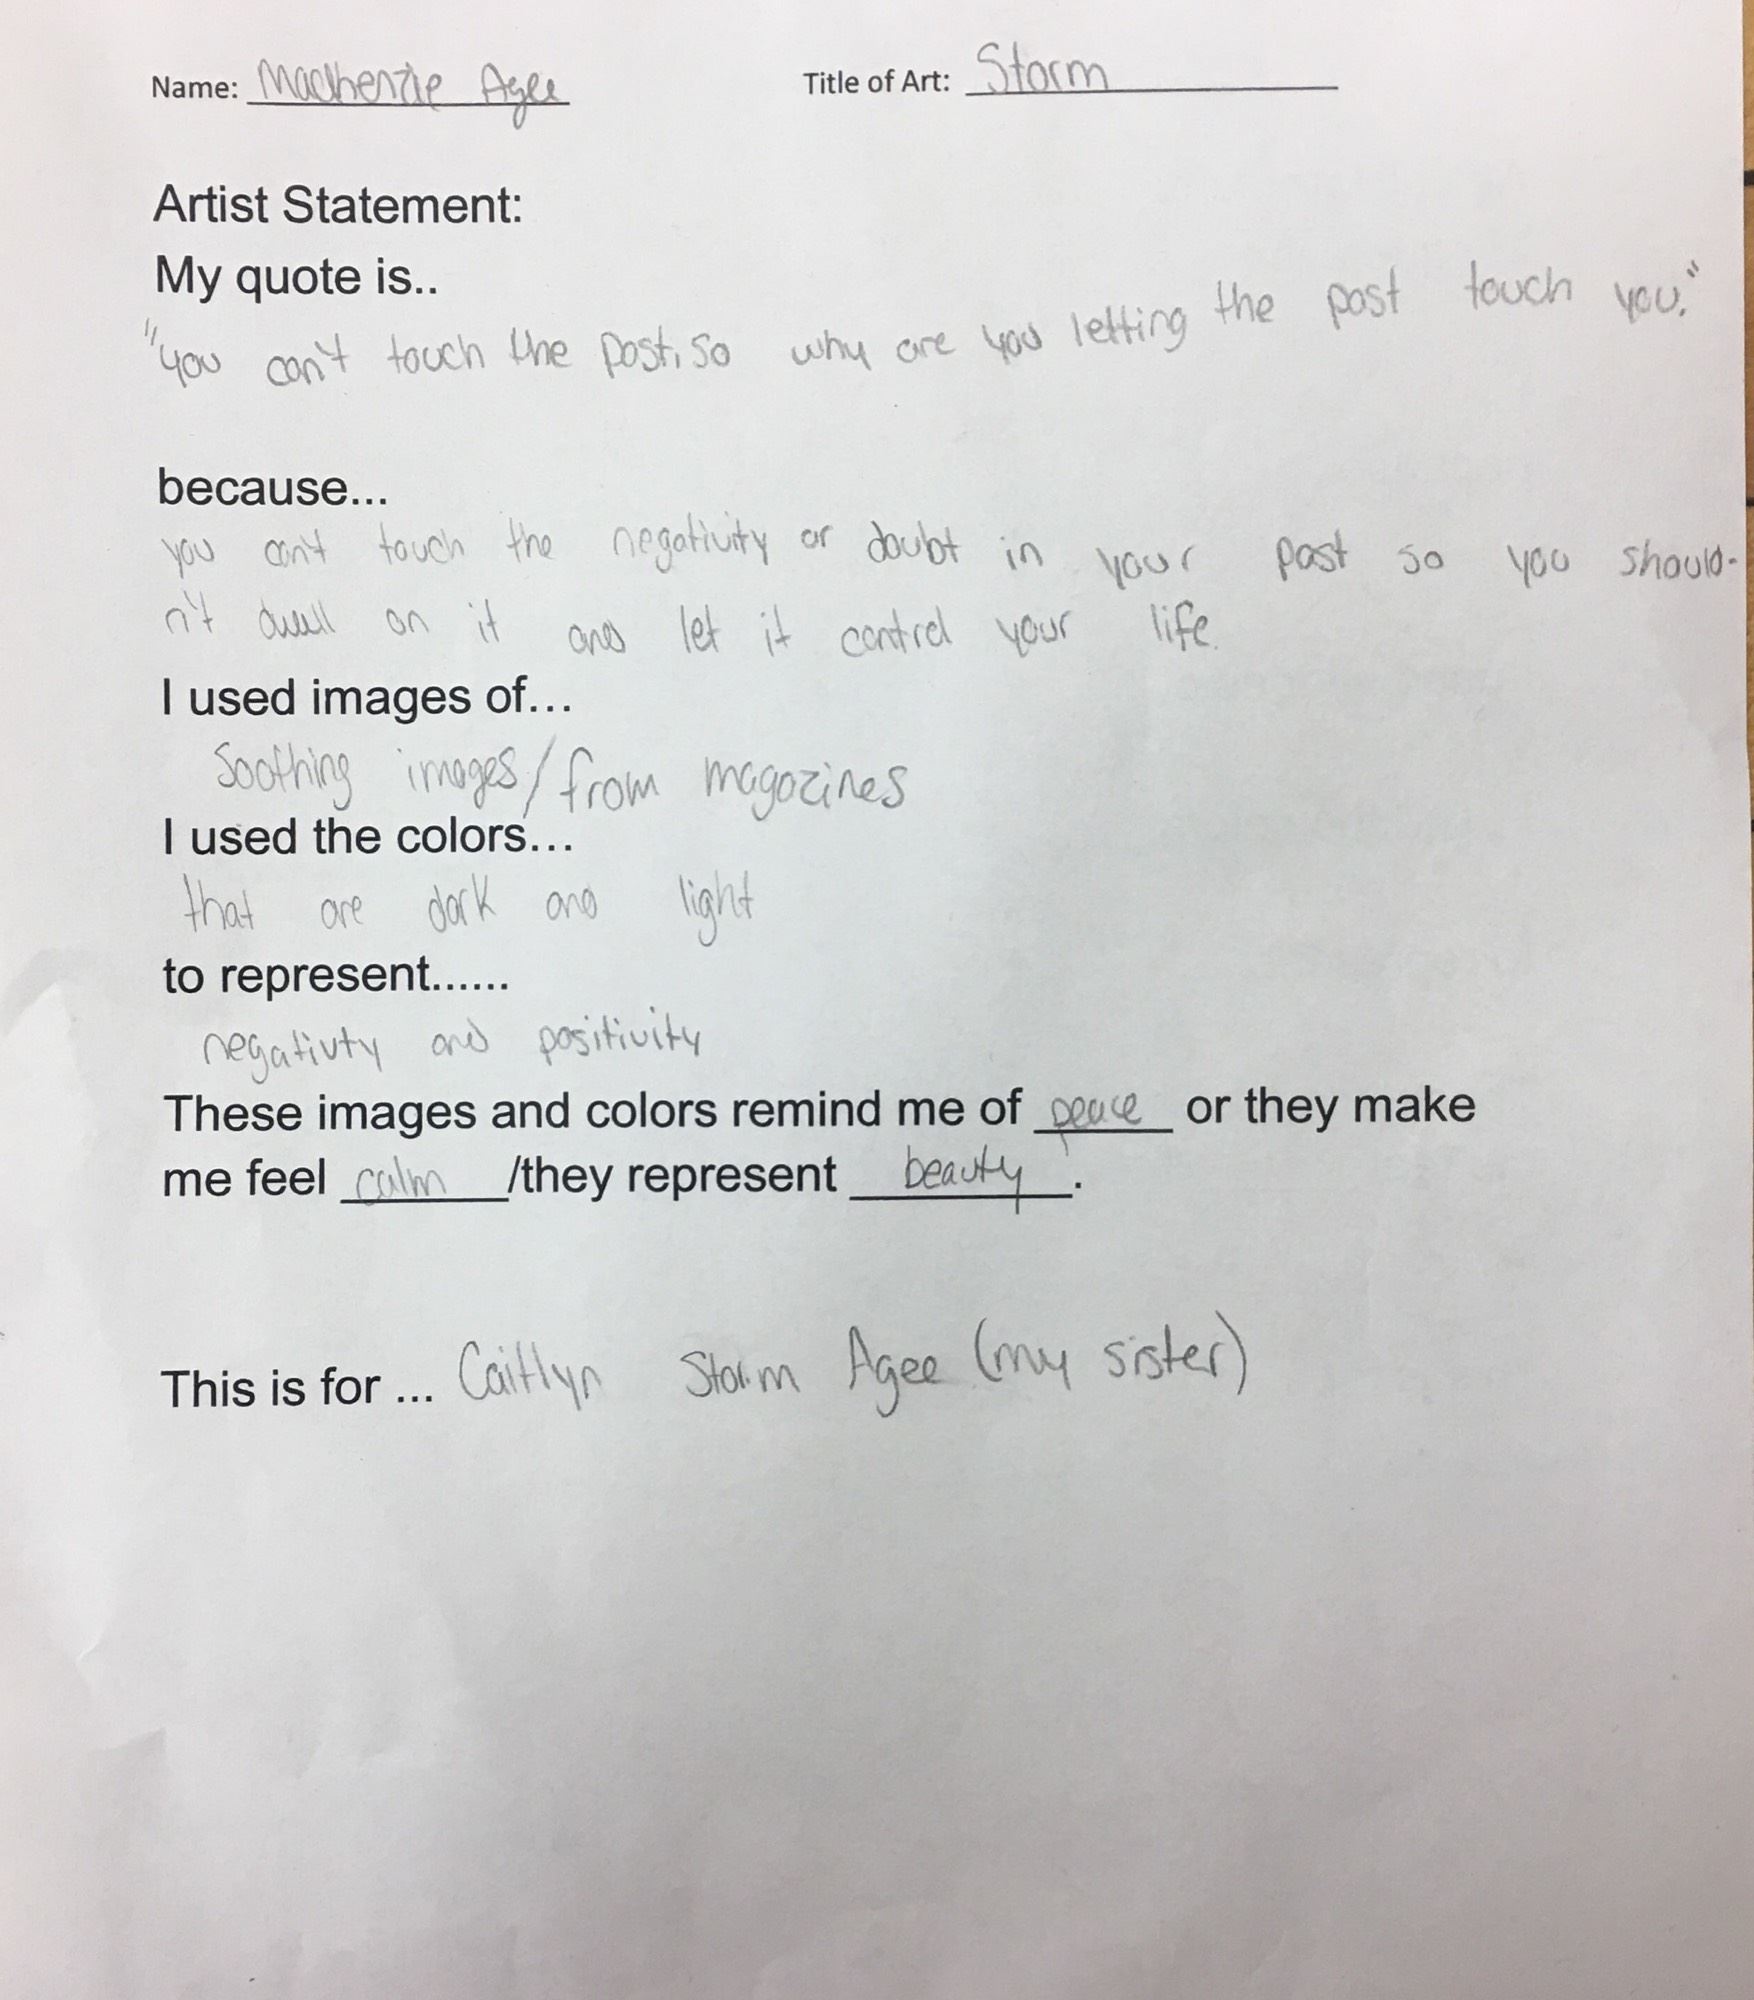 Name: Mackenzie Agee Title of Art: Storm
Artist Statement:
My quote is..
"you can't touch the past, so why are you letting the past touch you."
because...
you can't touch the negativity or doubt in your past so you should-
n't dwell on it and let it control your life.
I used images of...
Soothing images/from magazines
I used the colors...
that are dark and light
to represent......
negativty and positivity
These images and colors remind me of peace or they make
me feel calm /they represent beauty.
This is for ... Caitlyn Storm Agee (my sister)